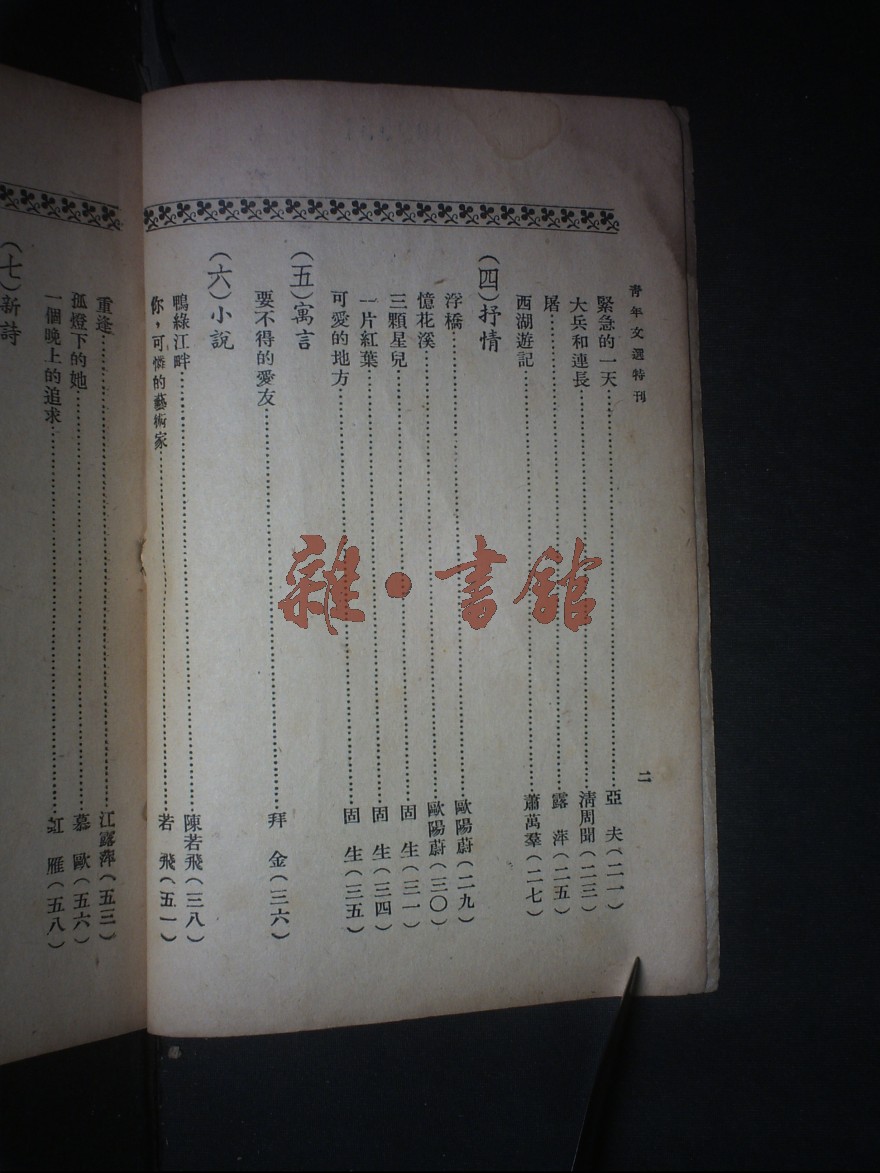 青年文選特刊
二
緊急的一天⋯⋯亞夫(二一)
大兵和連長⋯⋯清周聞(二三)
屠⋯⋯露萍(二五)
西湖遊記⋯⋯蕭萬羣(二七)
(四)抒情
浮橋⋯⋯歐陽蔚(二九)
憶花溪⋯⋯歐陽蔚(三〇)
三顆星兒⋯⋯固生(三一)
一片紅葉⋯⋯固生(三四)
可愛的地方⋯⋯固生(三五)
(五)寓言
要不得的愛友⋯⋯拜金(三六)
(六)小說
鴨綠江畔⋯⋯陳若飛(三八)
你,可憐的藝術家⋯⋯若飛(五一)
重逢⋯⋯江露萍(五三)
孤燈下的她⋯⋯慕歐(五六)
一個晚上的追求⋯⋯虹雁(五八)
(七)新詩
雜·書館